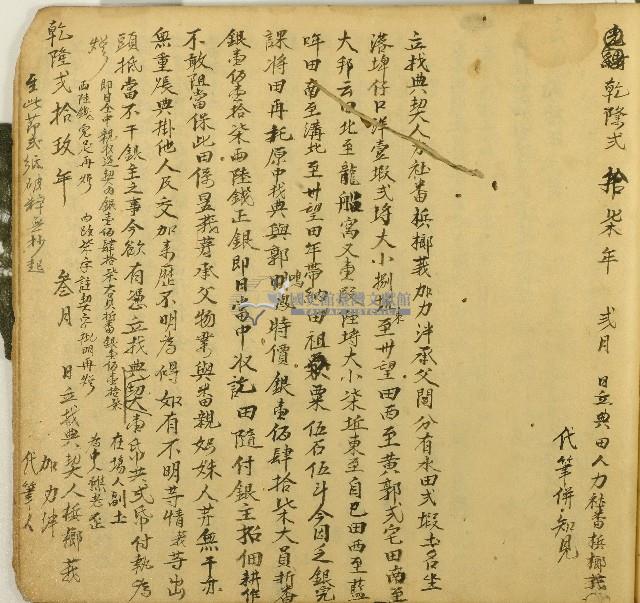 乾隆弍拾柒年 弍月 日立典田人力社番檳榔莪
代筆併知見
立找典契人力社番檳榔莪加力泮承父鬮分有水田弍塅土名坐
洛埤仔口洋壹塅弍埒大小捌坵東至卅望田西至黃郭弍宅田南至
大邦云田北至龍船窩又東勢陸埒大小柒坵東至自己田西至藍
咩田南至溝北至卅望田年帶納田租粟伍石伍斗今因乏銀完
課將田再耗原中找典與郭鳴 時價銀壹佰肆拾柒大員折番
銀壹佰壹拾柒兩陸錢正銀即日當中收訖田隨付銀主招佃耕作
不敢阻當保此田係昱莪等承父物業與番親姊妹人等無干亦
無重張典掛他人民交加來歷不明為碍如有不明等情莪等出
頭抵當不干銀主之事今欲有憑立找典契壹帋共弍帋付執為
炤
即日仝中親收過契內銀壹佰肆拾柒大員折番銀壹佰壹拾柒
兩陸錢完足再炤 內改柒字註契字批明再炤
在場人副土
為中人 老
乾隆弍拾玖年 叁月 日立找典契人檳榔莪
加力泮
代筆人
至此第弍紙破粹無抄起